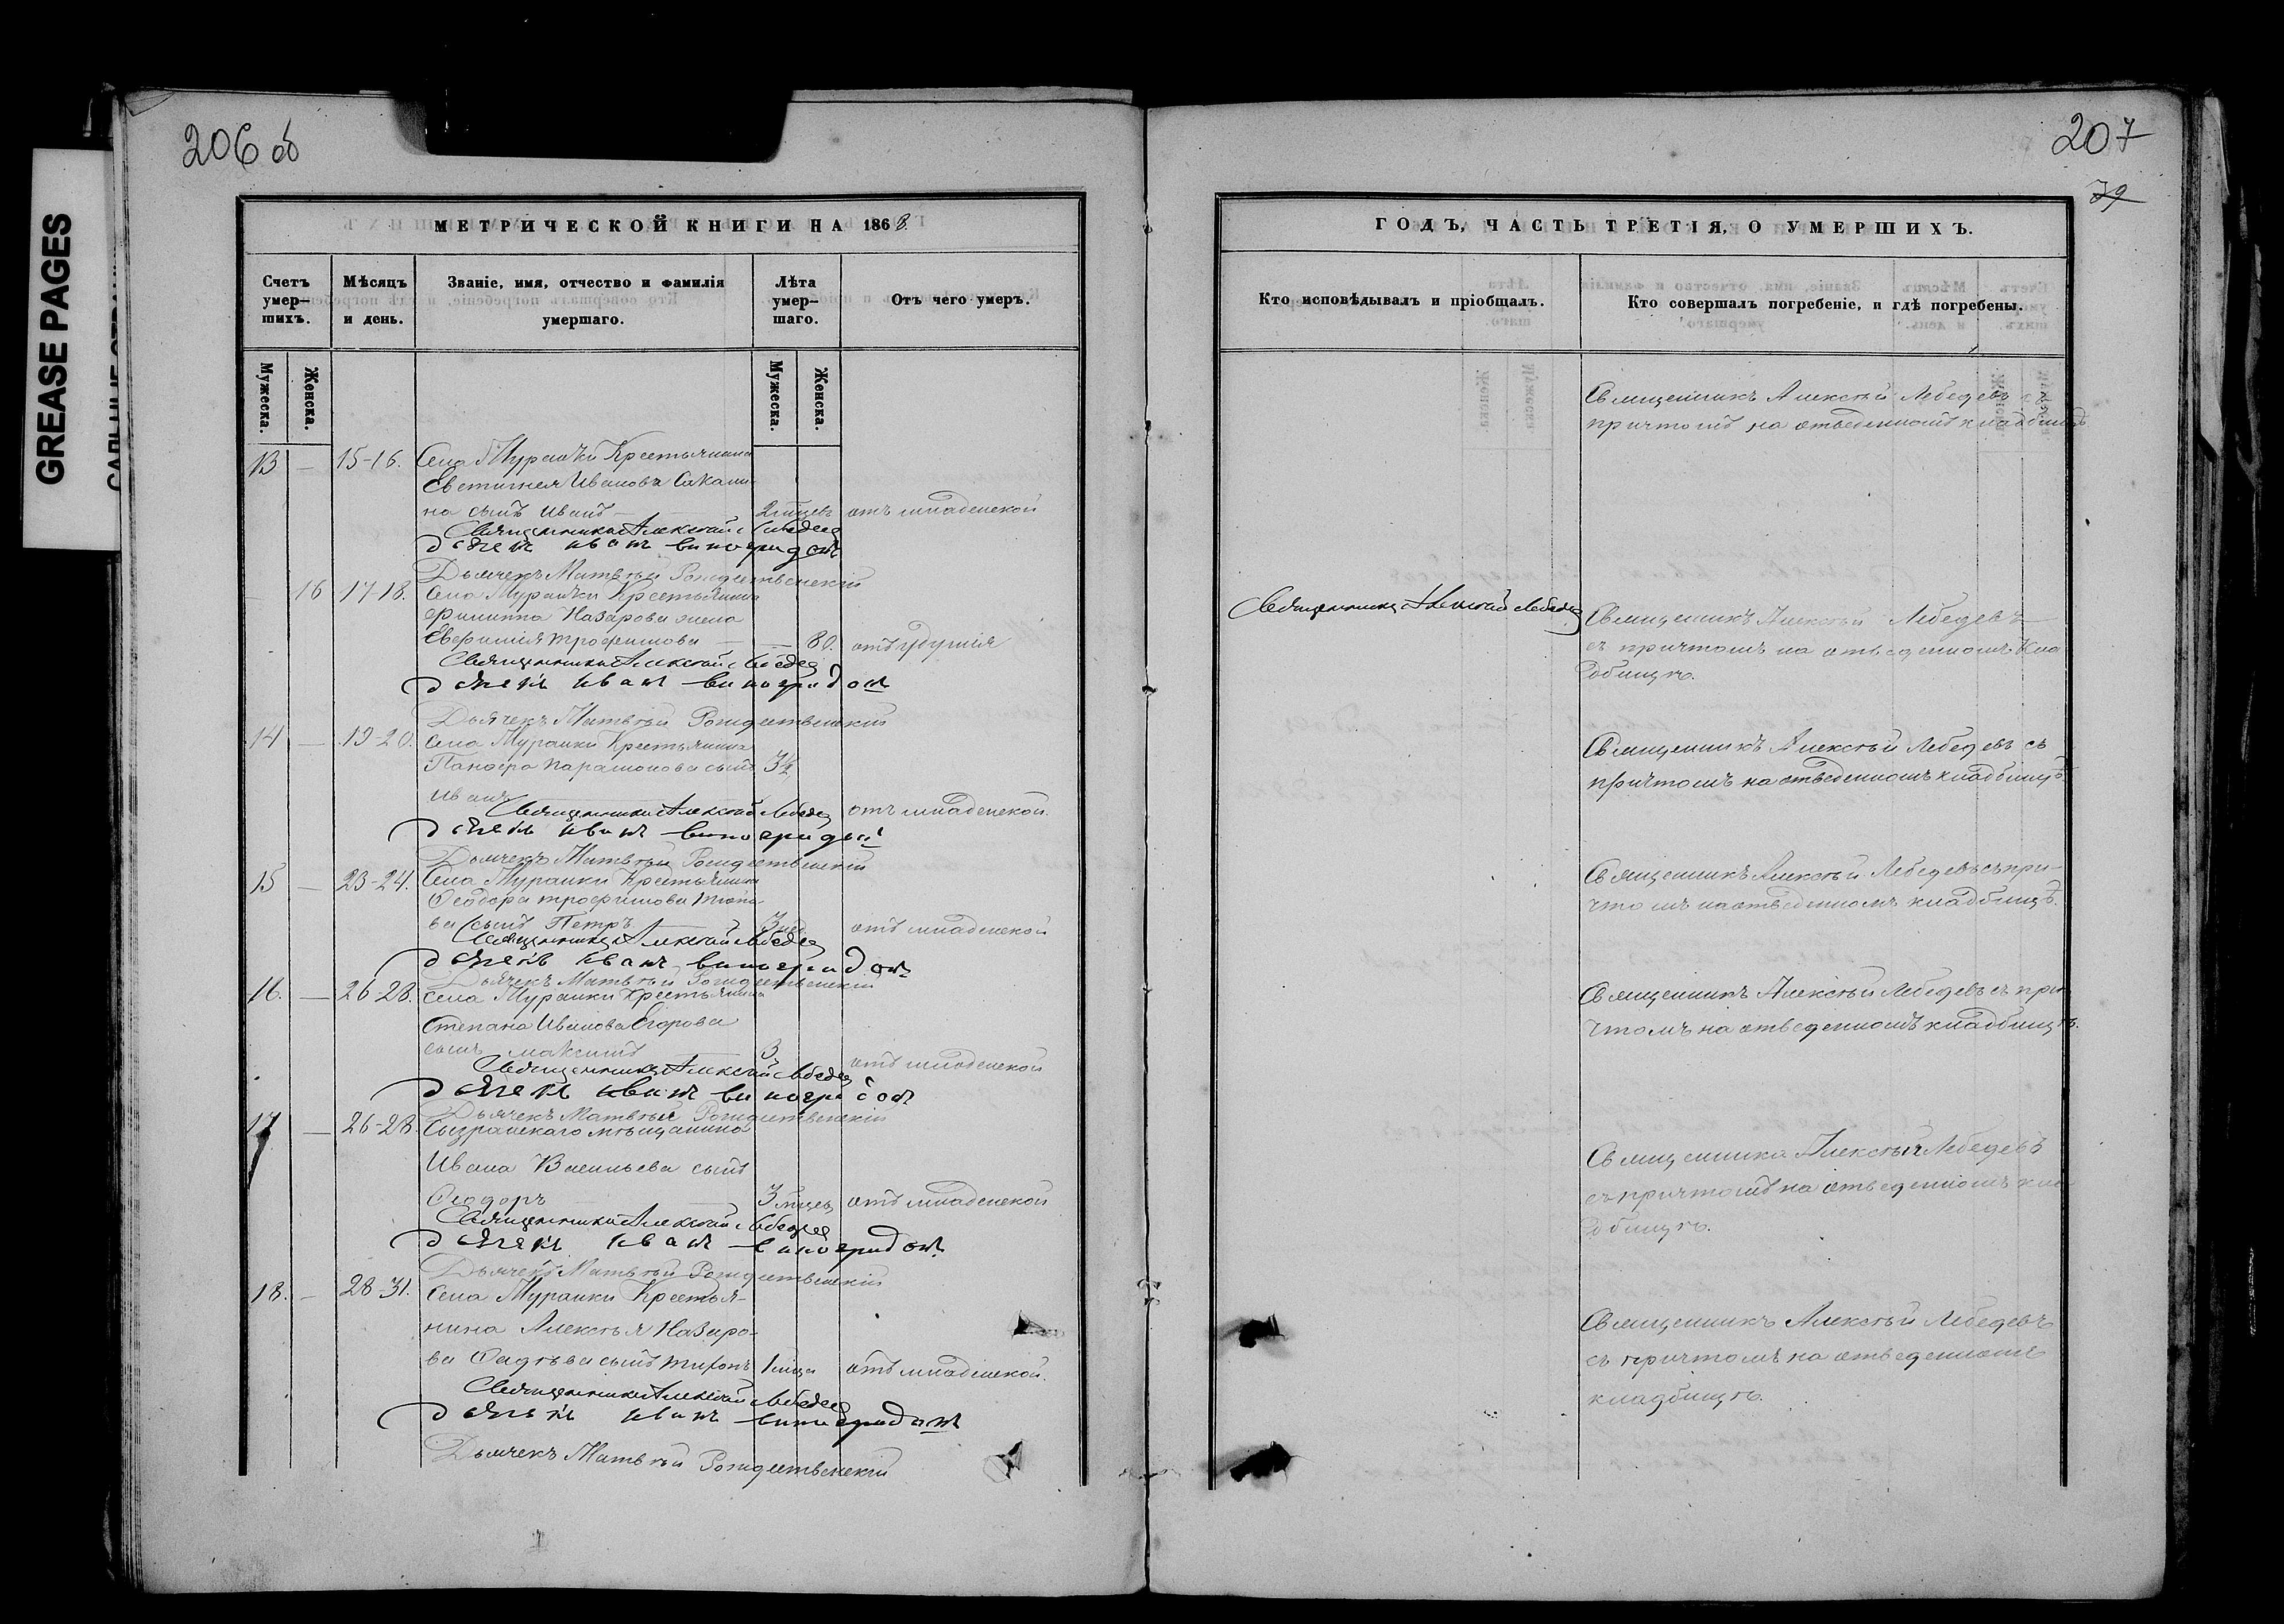 206 об
GREASE PAGES
МЕТРИЧЕСКОЙ КНИГИ НА 1868.
Счетъ умер-шихъ.
Мужеска.
Женска.
Мѣсяцъ и день.
Званіе, имя, отчество и фамилія умершаго.
Лѣта умер-шаго.
Мужеска.
Женска.
Отъ чего умеръ.
13 — 15-16. Села Муранки Крестьянина
Иванова
на сынъ Иванъ — 2 мѣсец. отъ младенской
Священникъ Алексѣй Лебедев
дьячекъ иванъ виноградовъ
Дьячекъ Матвѣй Рождественскій
16 17-18. Села Муранки Крестьянина
Филиппа Назарова жена
Евфимія трофимова — — 80. отъ удушія
Священникъ Алексѣй Лебедев
дьячекъ иванъ виноградовъ
Дьячекъ Матвѣй Рождественскій
14 — 19-20. Села Муранки Крестьянина
Панфера парамонова сынъ 3½
Иванъ отъ младенской.
Священникъ Алексѣй Лебедев
дьячекъ иванъ виноградовъ
Дьячекъ Матвѣй Рождественскій
15 — 23-24. Села Муранки Крестьянина
Ѳеодора трофимова
ва сынъ Петръ — 3 нед. отъ младенской
Священникъ Алексѣй Лебедев
дьячекъ иванъ виноградовъ
Дьячекъ Матвѣй Рождественскій
16. — 26-28. Села Муранки Крестьянина
Степана Иванова Егорова
сынъ максимъ — 3 отъ младенской
Священникъ Алексѣй Лебедев
дьячекъ иванъ виноградовъ
Дьячекъ Матвѣй Рождественскій
17 — 26-28. Сызранскаго мѣщанина
Ивана Васильева сынъ
Ѳеодоръ — 3 мѣсец. отъ младенской
Священникъ Алексѣй Лебедев
дьячекъ иванъ виноградовъ
Дьячекъ Матвѣй Рождественскій
18. — 28-31. Села Муранки Крестья-
нина Алексѣя Назаро-
ва Ѳадѣева сынъ тихонъ 1 мѣца отъ младенской.
Священникъ Алексѣй Лебедев
дьячекъ иванъ виноградовъ
Дьячекъ Матвѣй Рождественскій
207
79
ГОДЪ, ЧАСТЬ ТРЕТІЯ, О УМЕРШИХЪ.
Кто исповѣдывалъ и пріобщалъ.
Кто совершалъ погребеніе, и гдѣ погребены.
Священникъ Алексѣй Лебедевъ съ
причтомъ на отведенномъ кладбищѣ
Священникъ Алексѣй Лебедев
Священникъ Алексѣй Лебедевъ
съ причтомъ на отведенномъ кла
дбищѣ.
Священникъ Алексѣй Лебедевъ съ
причтомъ на отведенномъ кладбищѣ
Священникъ Алексѣй Лебедевъ съ при-
чтомъ на отведенномъ кладбищѣ.
Священникъ Алексѣй Лебедевъ съ при
чтомъ на отведенномъ кладбищѣ.
Священника Алексѣй Лебедевъ
съ причтомъ на отведенномъ кла
дбищѣ.
Священникъ Алексѣй Лебедевъ
съ причтомъ на отведенномъ
кладбищѣ.